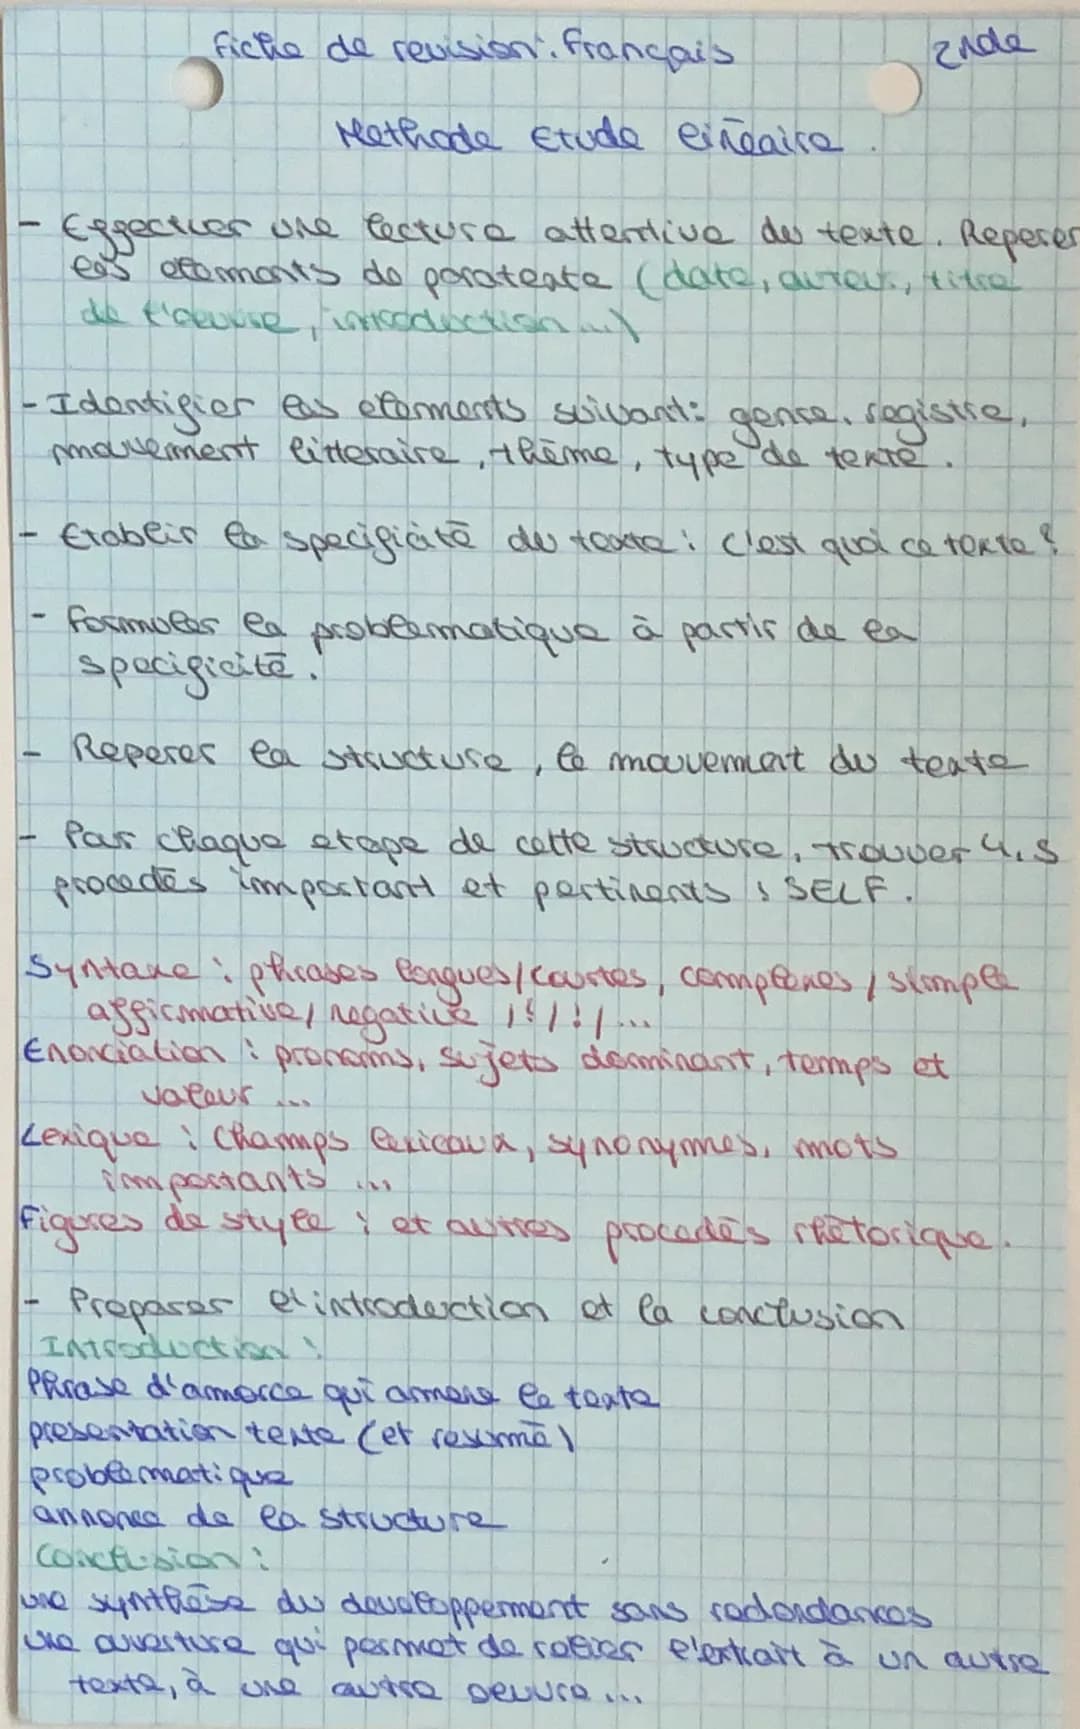 Fiche de revision : français 2nde
Methode Etude linéaire.
- Effectuer une lecture attentive du texte. Reperer
les elements de paratexte (date, auteur, titre
de l'oeuvre, introduction ...)
- Identifier les elements suivant : genre, registre,
mouvement litteraire, thème, type de texte.
- Etablir la specificité du texte : c'est quoi ce texte ?
- formuler la problematique à partir de la
specificité.
- Reperer la structure, le mouvement du texte
- Par chaque etape de cette structure, trouver 4,5
procedés important et pertinents : SELF.
Syntaxe : phrases longues/courtes, complexes / simple
affirmative/ negative / ? / ! / ...
Enonciation : pronoms, sujets dominant, temps et
valeur ...
Lexique : Champs lexicaux, synonymes, mots
importants ...
Figures de style : et autres procedés rhétorique.
- Preparer l'introduction et la conclusion
Introduction :
Phrase d'amorce qui amene le texte
presentation texte (et resumé)
problematique
annonce de la structure
Conclusion :
une synthèse du developpement sans redondances
une ouverture qui permet de relier l'extrait à un autre
texte, à une autre oeuvre ...